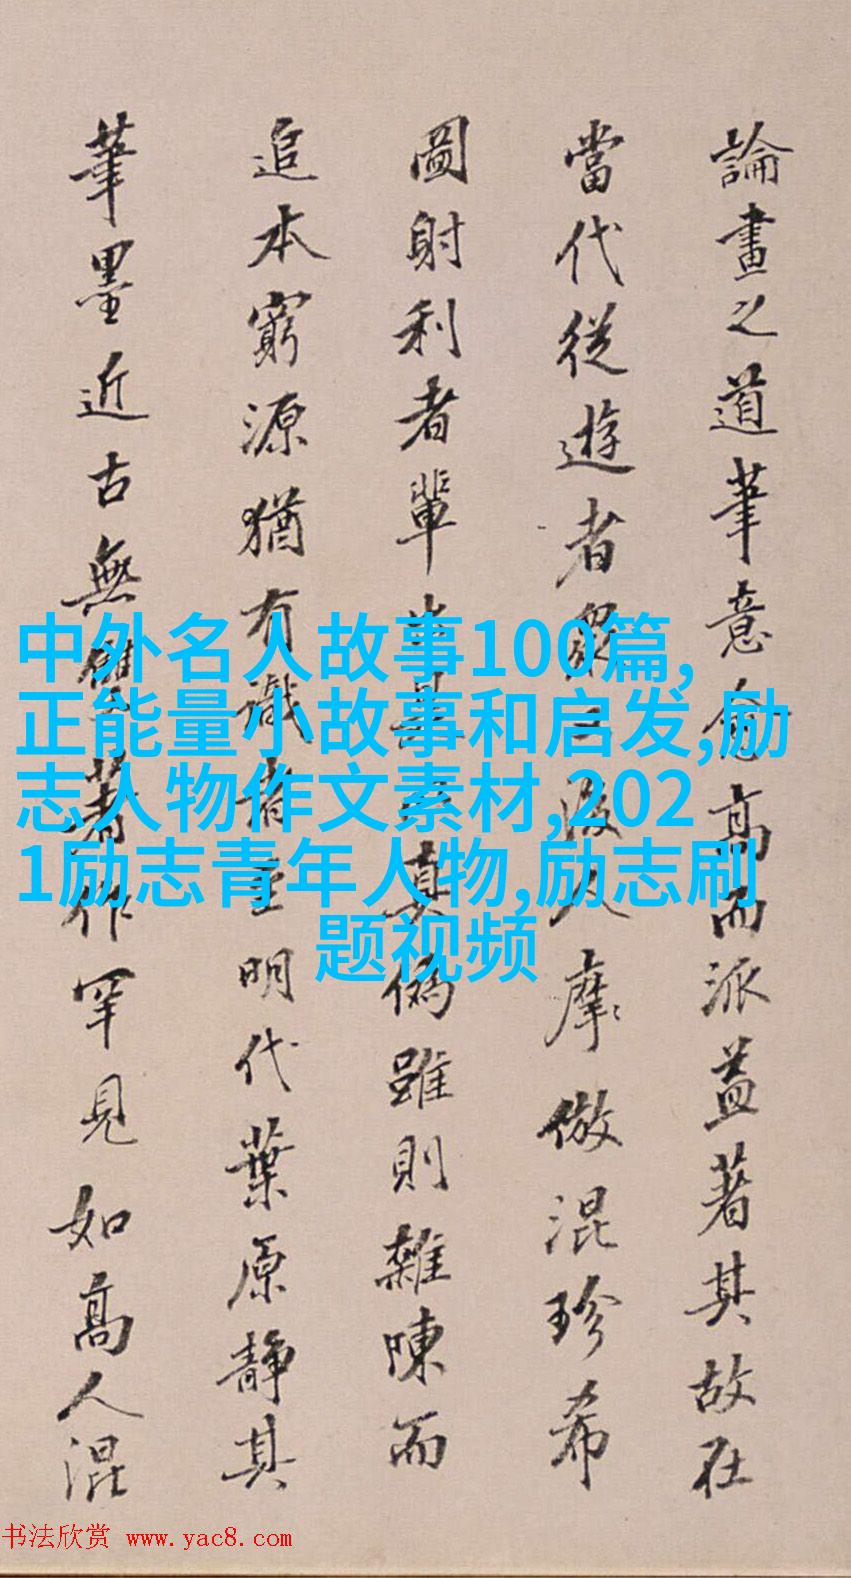 論畫之道筆意愈高而派益著其故在
當代從遊者衆後人摩倣混珍希
圖射利者輩出是真偽雖則雜陳而
追本窮源猶有識者至明代葉原靜其
筆墨近古無雙著作罕見如高人混
中外名人故事100篇,
正能量小故事和启发,励
志人物作文素材,202
1励志青年人物,励志刷
题视频
书法欣赏 www.yac8.com